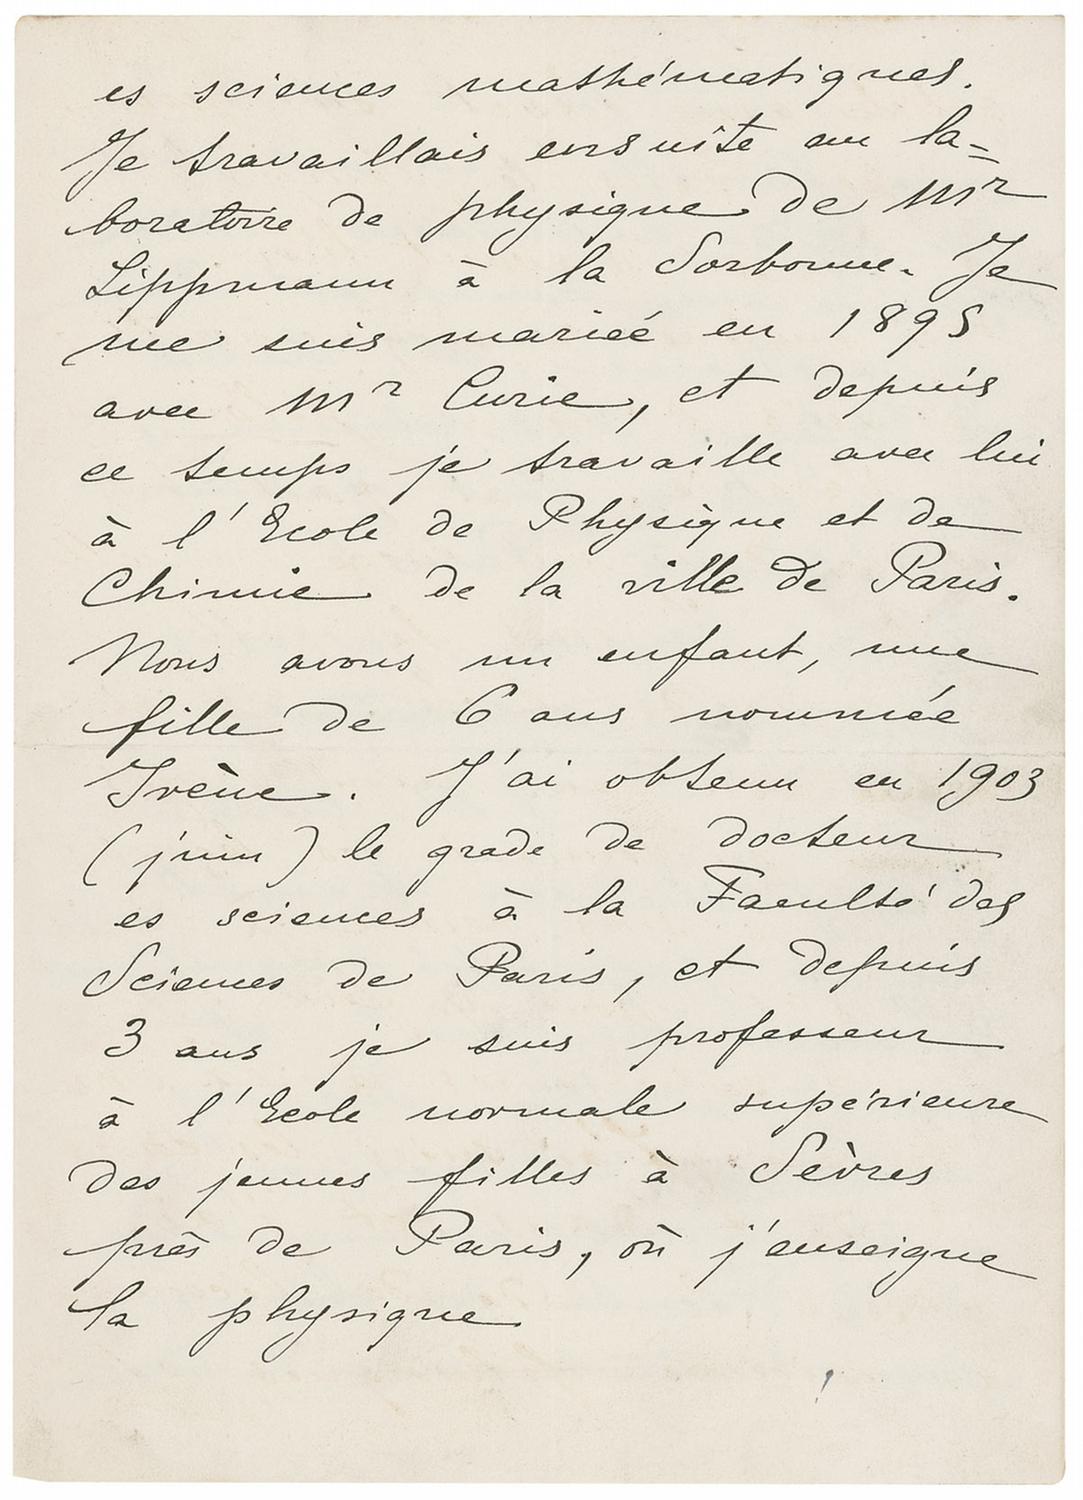 es sciences mathématiques.
Je travaillais ensuite au la-
boratoire de physique de Mr
Lippmann à la Sorbonne. Je
me suis mariée en 1895
avec Mr Curie, et depuis
ce temps je travaille avec lui
à l'Ecole de Physique et de
Chimie de la ville de Paris.
Nous avons un enfant, une
fille de 6 ans nommée
Irène. J'ai obtenu en 1903
(juin) le grade de docteur
es sciences à la Faculté des
Sciences de Paris, et depuis
3 ans je suis professeur
à l'Ecole normale supérieure
des jeunes filles à Sèvres
près de Paris, où j'enseigne
la physique